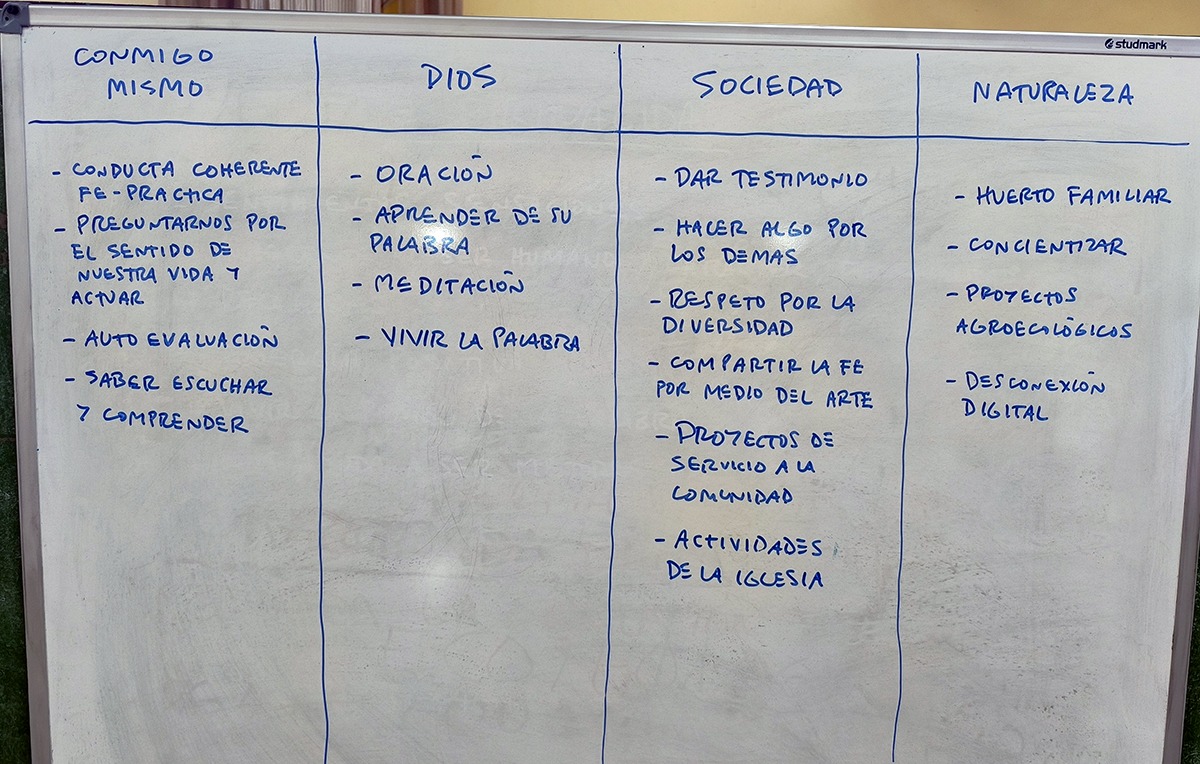 studmark
CONMIGO
MISMO
- CONDUCTA COHERENTE
FE-PRACTICA
- PREGUNTARNOS POR
EL SENTIDO DE
NUESTRA VIDA Y
ACTUAR
- AUTO EVALUACIÓN
- SABER ESCUCHAR
Y COMPRENDER
DIOS
- ORACIÓN
- APRENDER DE SU
PALABRA
- MEDITACIÓN
- VIVIR LA PALABRA
SOCIEDAD
- DAR TESTIMONIO
- HACER ALGO POR
LOS DEMAS
- RESPETO POR LA
DIVERSIDAD
- COMPARTIR LA FE
POR MEDIO DEL ARTE
- PROYECTOS DE
SERVICIO A LA
COMUNIDAD
- ACTIVIDADES
DE LA IGLESIA
NATURALEZA
- HUERTO FAMILIAR
- CONCIENTIZAR
- PROYECTOS
AGROECOLÓGICOS
- DESCONEXIÓN
DIGITAL